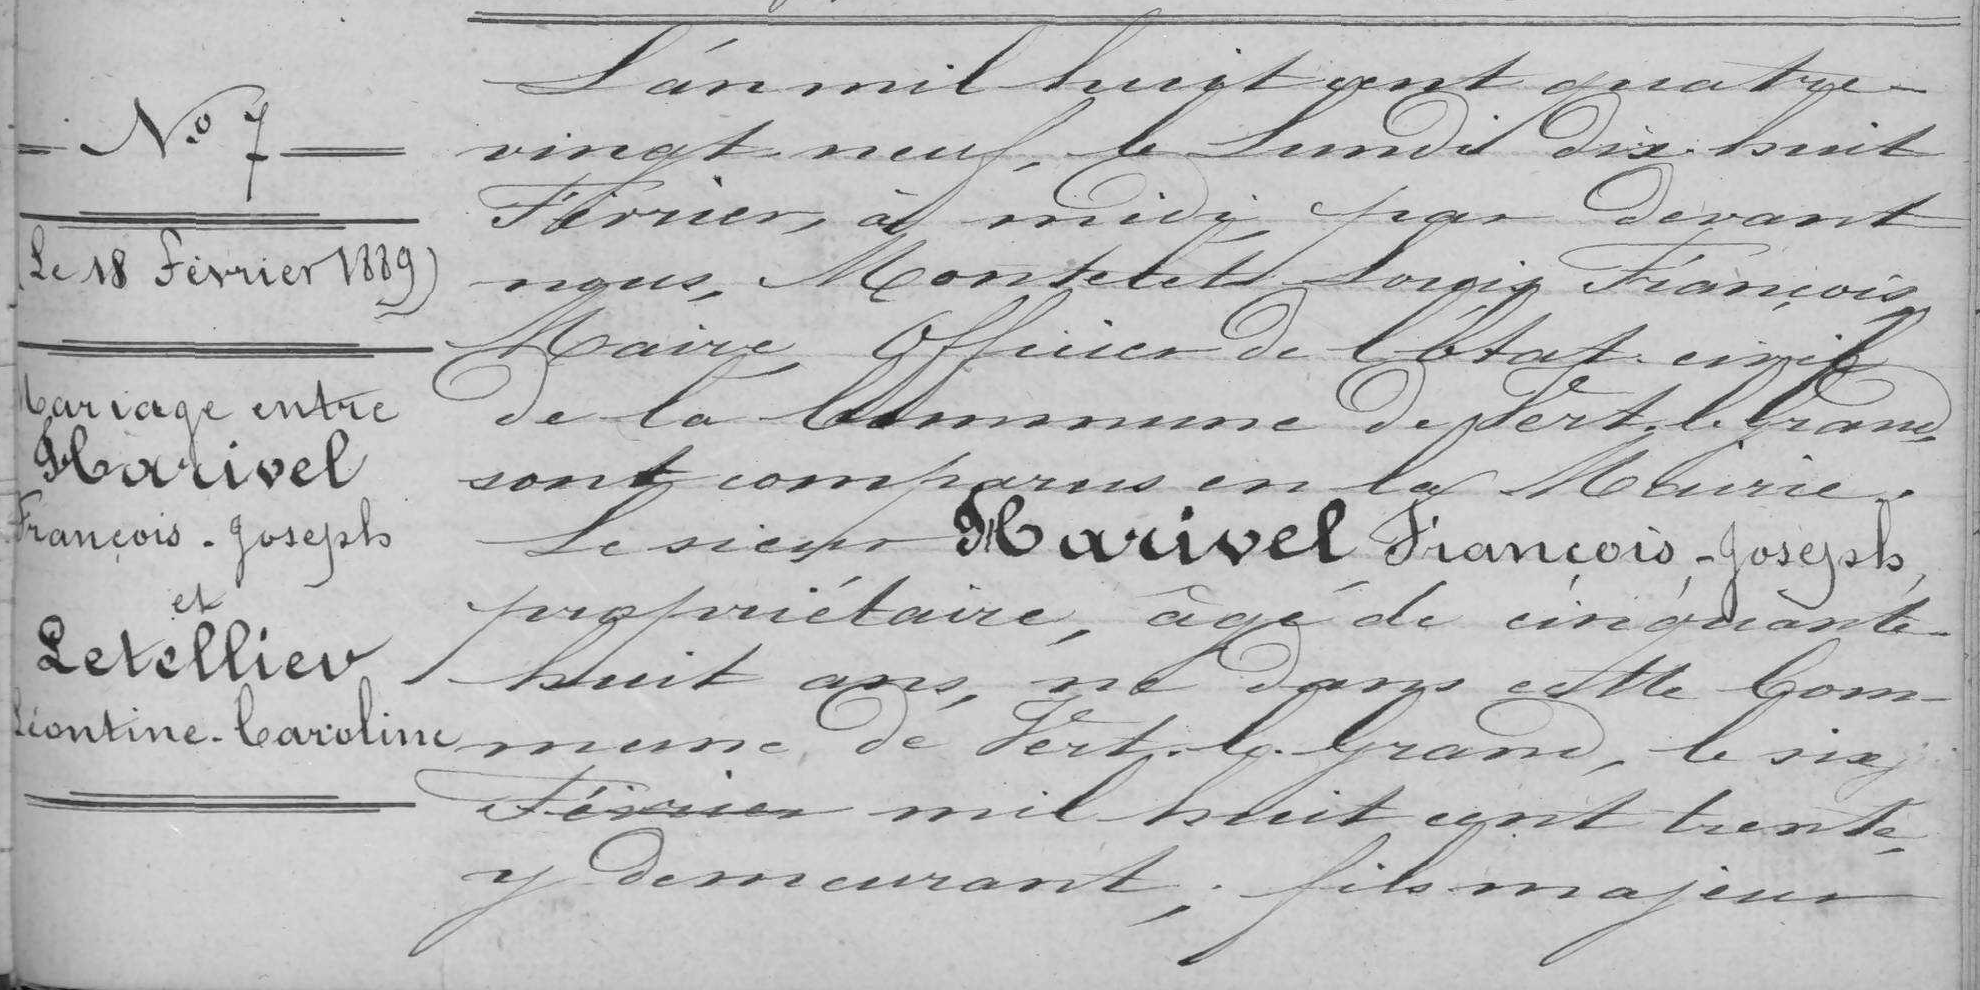 N.o 7
(Le 18 Février 1889)
Mariage entre
Harivel
François - Joseph
et
Letellier
Léontine - Caroline
L'án mil huit cent quatre-
vingt-neuf, le Lundi dix-huit
Février, à midi, par devant
nous, Montelet Louis François
Maire, Officier de l'état-civil
de la Commune de Vert-le-Grand,
sont comparus en la Mairie.
Le sieur Harivel François-Joseph,
propriétaire, âgé de cinquante-
huit ans, né dans cette Com-
mune de Vert-le-Grand, le six
Février mil huit cent trente,
y demeurant, fils majeur